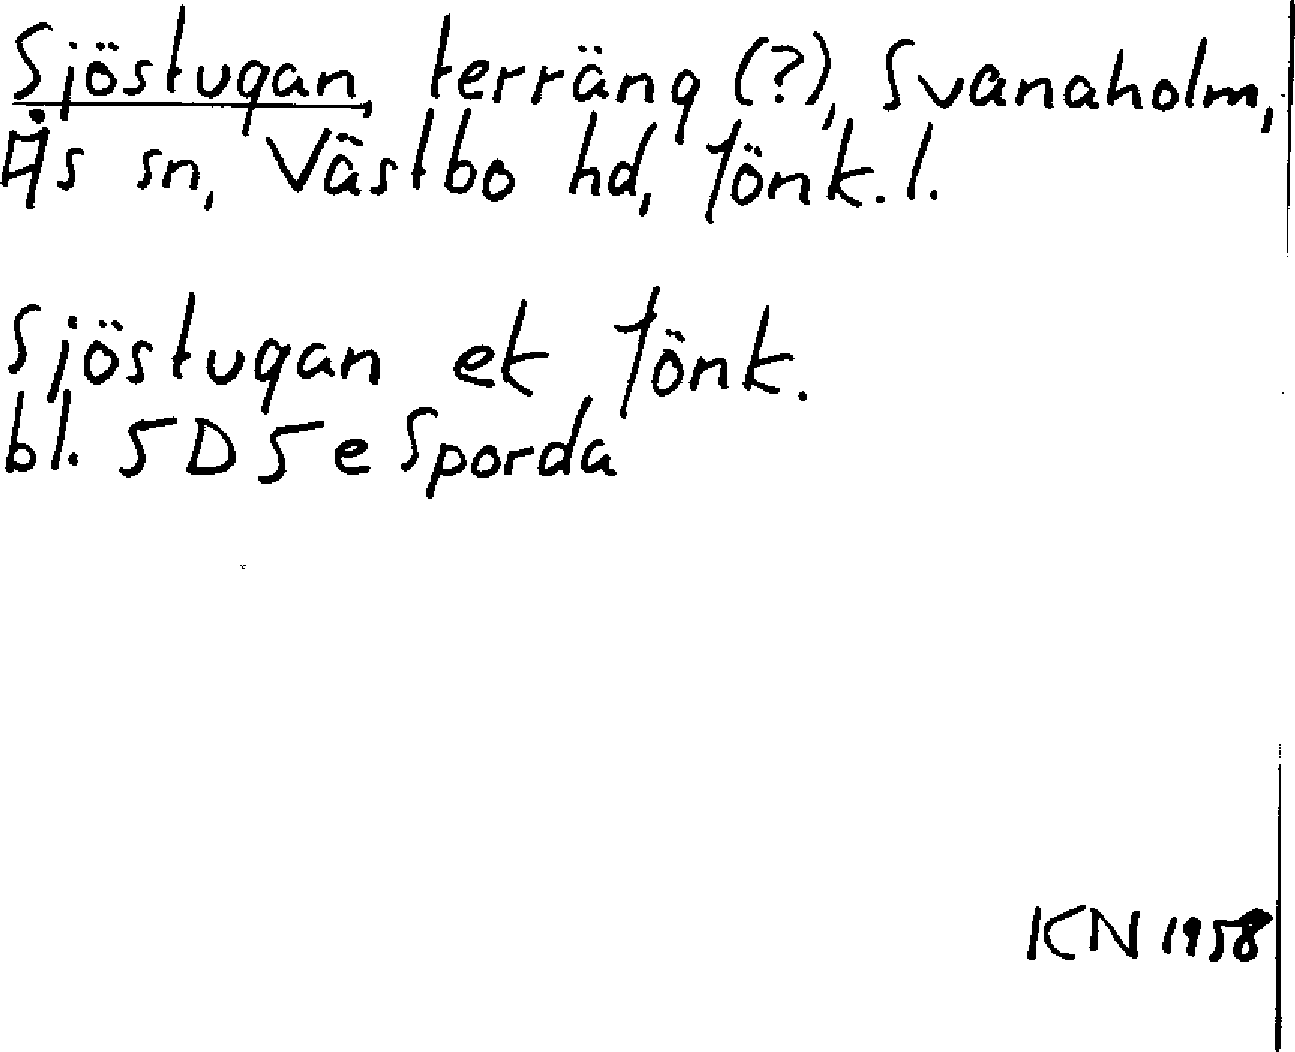 Sjöstugan, terräng (?), Svanaholm,
Ås sn, Västbo hd, Jönk. l.
Sjöstugan ek Jönk.
bl. 5D5e Sporda
KN 1958